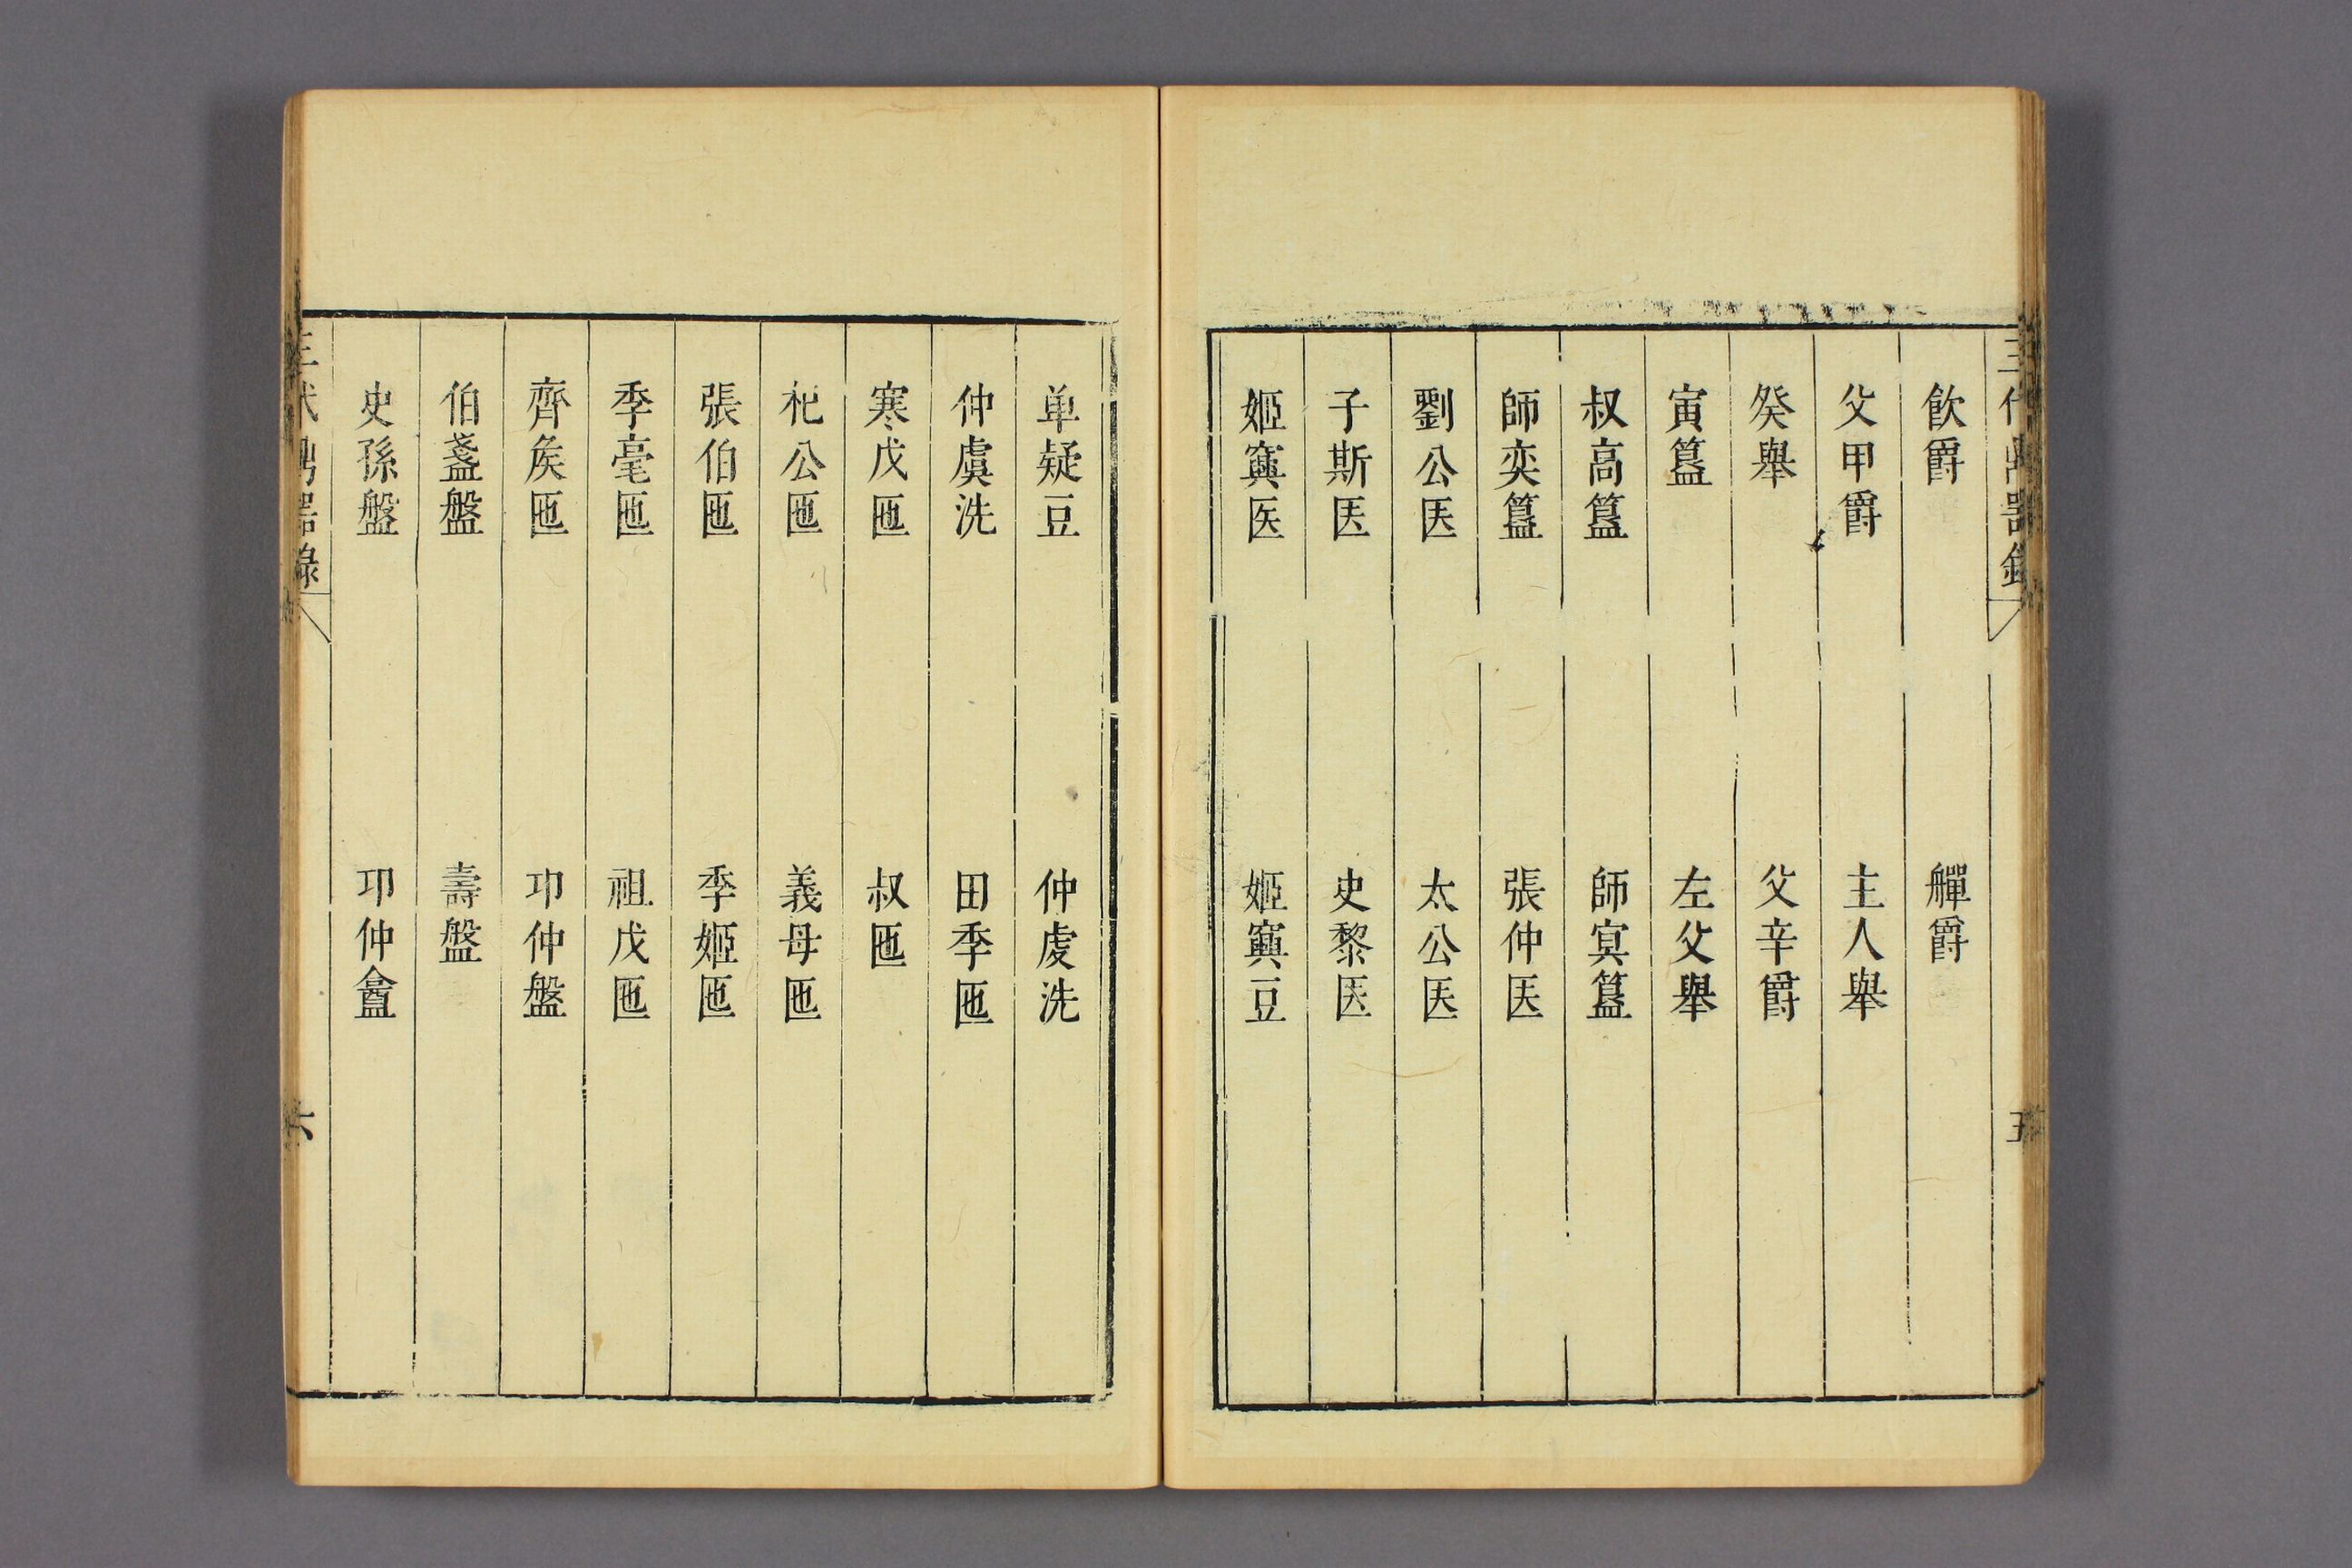 飲爵　觶爵
父甲爵　主人舉
癸舉　父辛爵
寅簋　左父舉
叔高簋　師寏簋
師奕簋　張仲医
劉公医　太公医
子斯医　史黎医
姬寏医　姬寏豆
单疑豆　仲虔洗
仲虞洗　田季匜
寒戊匜　叔匜
杞公匜　義母匜
張伯匜　季姬匜
季亳匜　祖戊匜
齊矦匜　卭仲盤
伯盞盤　壽盤
史孫盤　卭仲盦
六